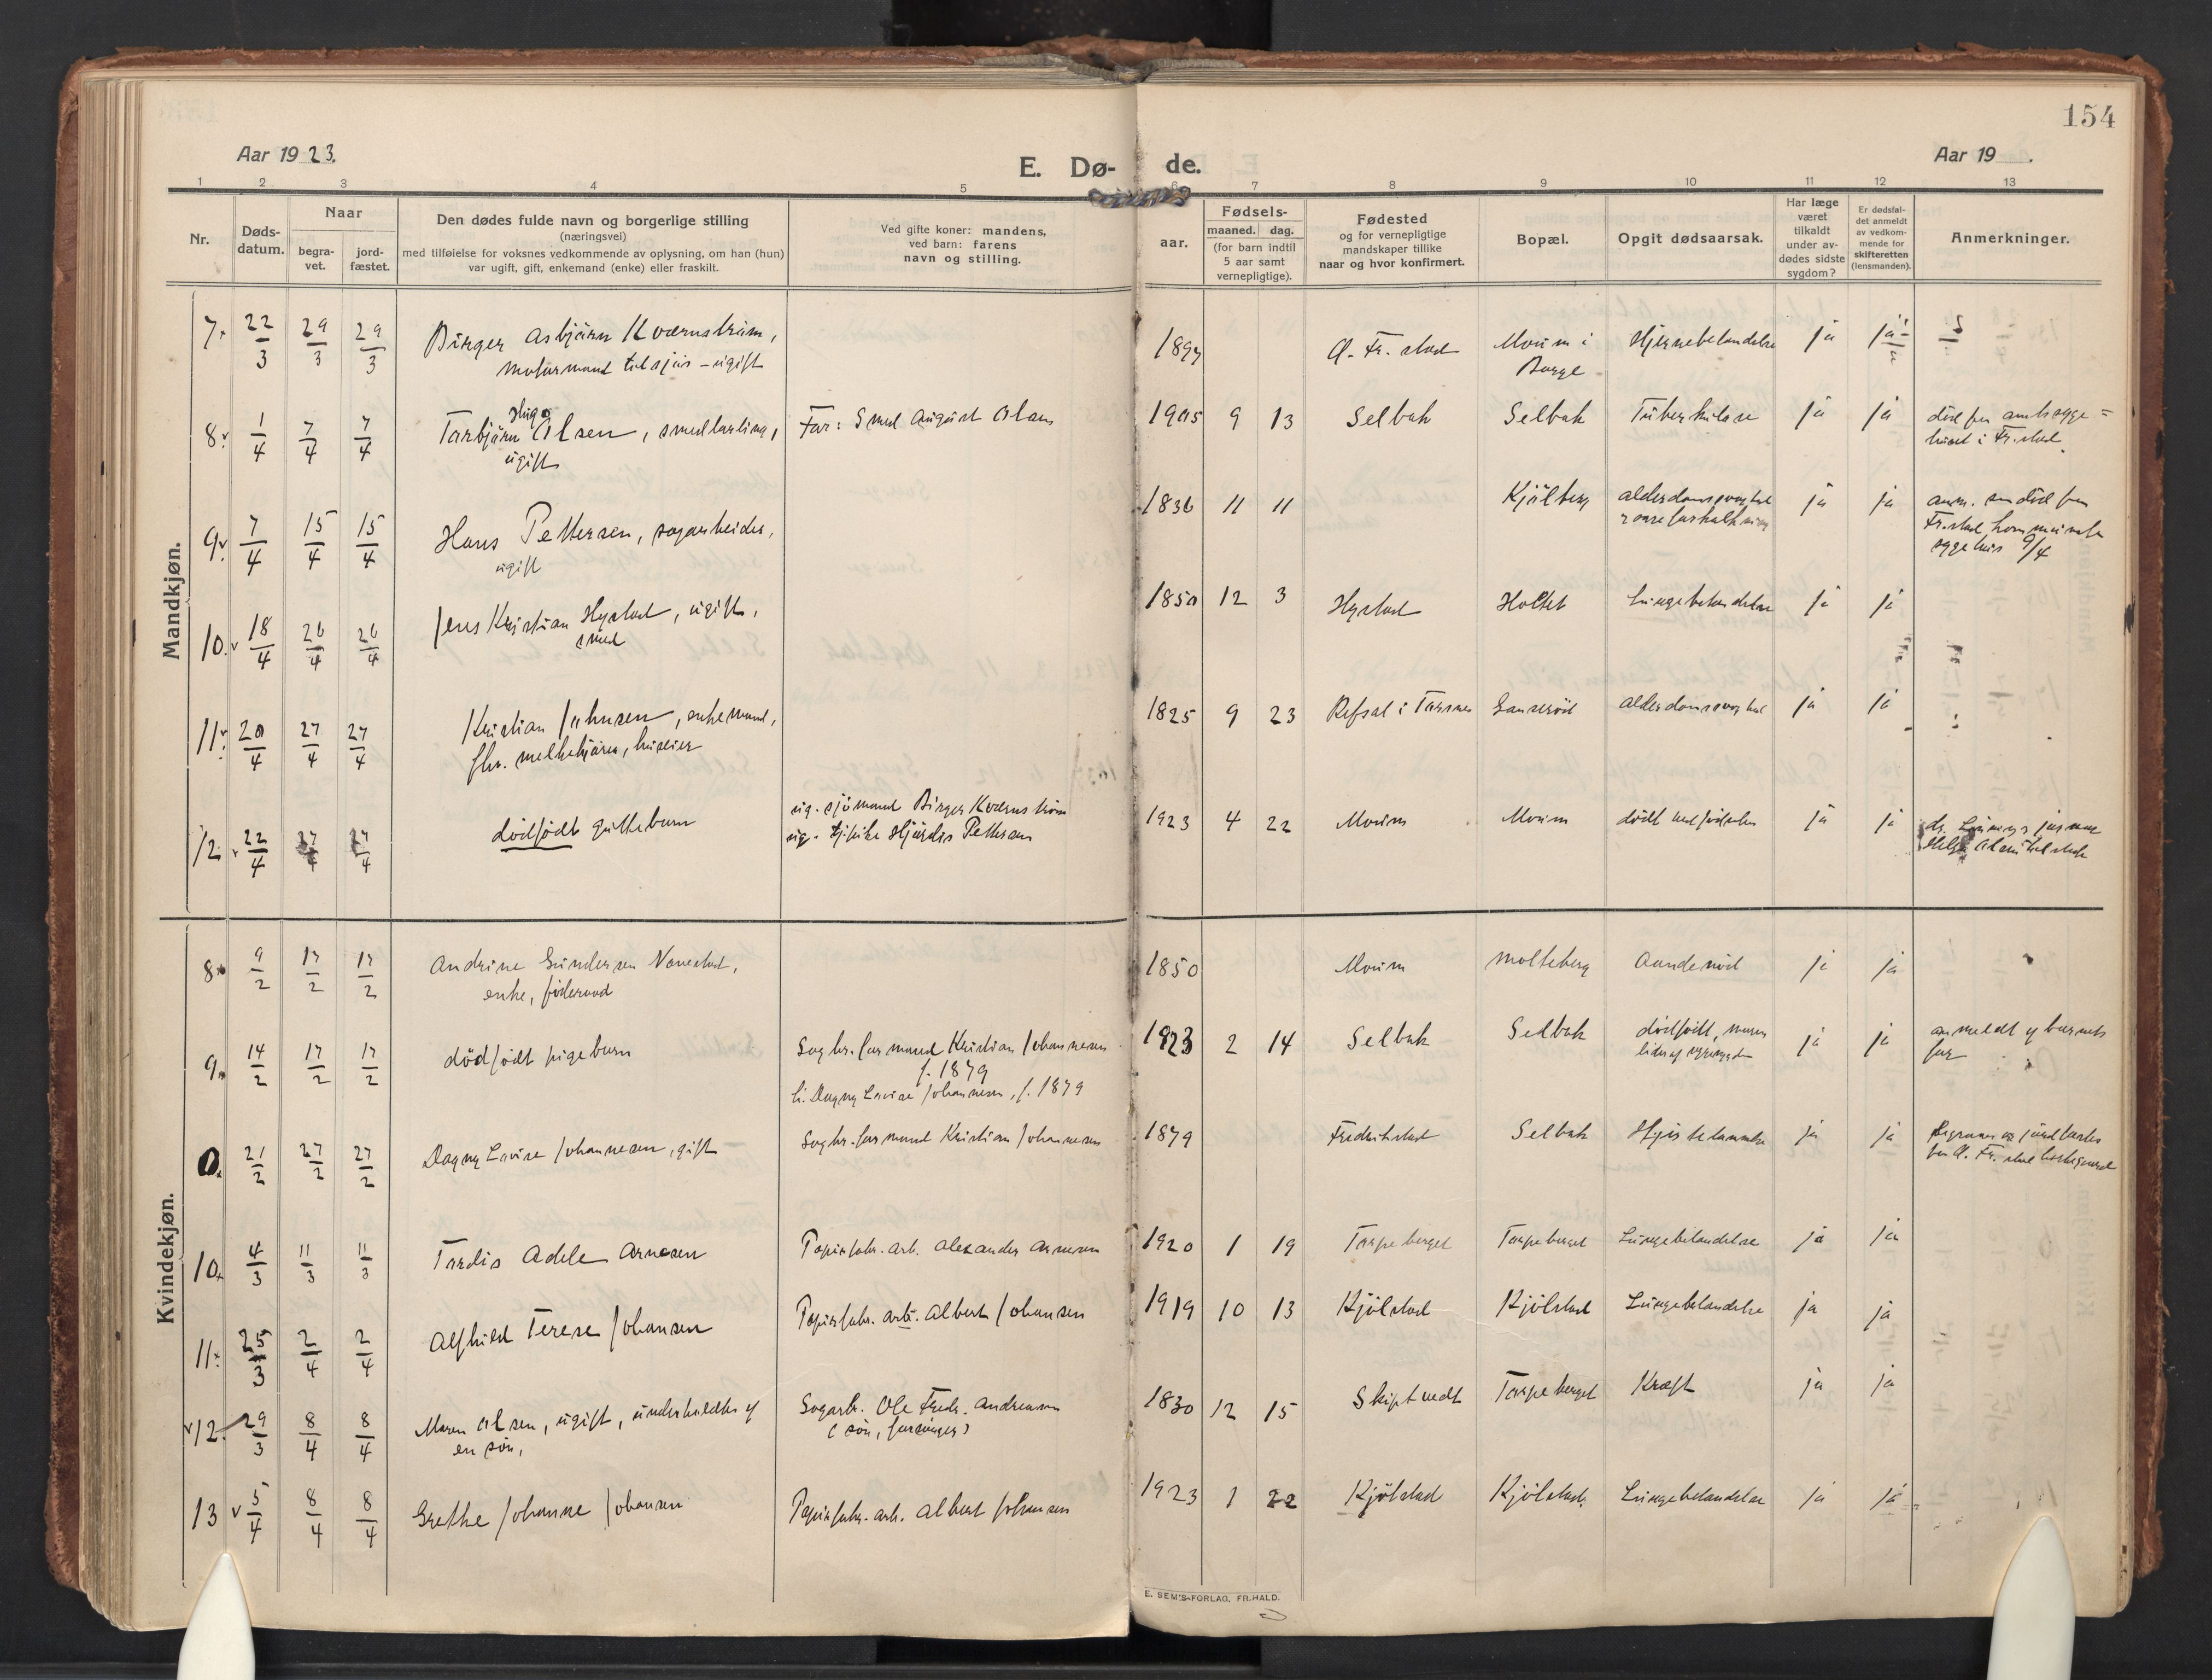 154
Aar 1923.
E. Dø-
de.
Aar 19 .
1 2 3 4 5 6 7 8 9 10 11 12 13
Nr.
Døds-
datum.
Naar
begra-
vet.
jord-
fæstet.
Den dødes fulde navn og borgerlige stilling
(næringsvei)
med tilføielse for voksnes vedkommende av oplysning, om han (hun)
var ugift, gift, enkemand (enke) eller fraskilt.
Ved gifte koner: mandens,
ved barn: farens
navn og stilling.
Fødsels-
aar.
maaned. dag.
(for barn indtil
5 aar samt
vernepligtige).
Fødested
og for vernepligtige
mandskaper tillike
naar og hvor konfirmert.
Bopæl.
Opgit dødsaarsak.
Har læge
været
tilkaldt
under av-
dødes sidste
sygdom?
Er dødsfal-
det anmeldt
av vedkom-
mende for
skifteretten
(lensmanden).
Anmerkninger.
Mandkjøn.
7. 22/3 29/3 29/3 Birger Asbjørn Kværnstrøm, 1897 Moum i Hjernebetændelse ja ja
motormand tilsjøs - ugift Borge
Hugo
8. 1/4 7/4 7/4 Torbjørn Olsen, smedlærling, Far: Smed August Olsen 1905 9 13 Selbak Selbak Tuberkulose ja ja død paa amtssyge=
ugift huset i Fr.stad
9. 7/4 15/4 15/4 Hans Pettersen, sagarbeider, 1836 11 11 Kjølberg alderdomssvaghet ja ja
ugift Fr.stad kommunale
sygehus 9/4
10. 18/4 26/4 26/4 Jens Kristian Hystad, ugift, 1850 12 3 Hystad Holtet Lungebetændelse ja ja
smed
11. 20/4 27/4 27/4 Kristian Johnsen, enkemand, 1825 9 23 Refsal i Torsnes alderdomssvaghet ja ja
fhv. melkekjører, huseier
12. 22/4 27/4 27/4 dødfødt guttebarn ug. sjømand Birger Kværnstrøm 1923 4 22 Moum Moum ja ja
ug. Hjørdis Pettersen
Kvindekjøn.
8. 9/2 17/2 17/2 Andrine Gundersen Navestad, 1850 Moum Molteberg Aandenød ja ja
enke, føderaad
9. 14/2 17/2 17/2 dødfødt pigebarn Sagbr.formand Kristian Johannesen 1923 2 14 Selbak Selbak dødfødt, moren ja ja anmeldt af barnets
f. 1879 far
h. Dagny Lovise Johannesen, f. 1879
0. 21/2 27/2 27/2 Dagny Lovise Johannesen, gift Sagbr.formand Kristian Johannesen 1879 Fredrikstad Selbak Hjertelammelse ja ja begraves og jordfæstes
10. 4/3 11/3 11/3 Tordis Adele Arnesen Papirfabr. arb. Alexander Arnesen 1920 1 19 Torpeberget Torpeberget Lungebetændelse ja ja
11. 25/3 2/4 2/4 Alfhild Terese Johansen Papirfabr. arb. Albert Johansen 1919 10 13 Kjølstad Kjølstad Lungebetændelse ja ja
12. 29/3 8/4 8/4 Maren Olsen, ugift, underholdtes af Sagarb. Ole Fredr. Andreassen 1830 12 15 Skiptvedt Torpeberget Kræft ja ja
en søn, (søn, forsørger)
13 5/4 8/4 8/4 Grethe Johanne Johansen Papirfabr. arb. Albert Johansen 1923 1 22 Kjølstad Kjølstad Lungebetændelse ja ja
E. SEM'S-FORLAG, FR.HALD.